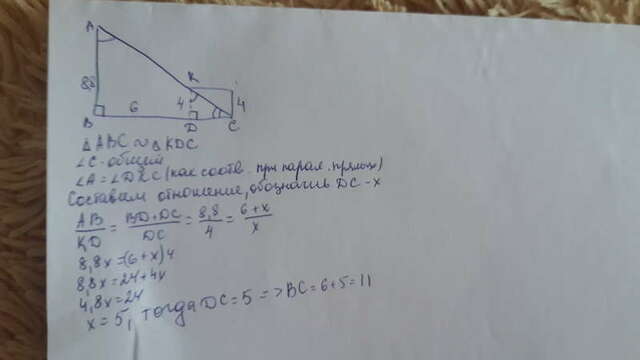 A
8,8
B
6
K
4
D
C
4
△ABC ∾ △KDC
∠C-общий
∠A=∠DKC (как соотв. при парал. прямых)
Составим отношение, обозначив DC-x
AB/KD = BD+DC/DC = 8,8/4 = 6+x/x
8,8x=(6+x)4
8,8x=24+4x
4,8x=24
x=5, тогда DC=5 => BC=6+5=11